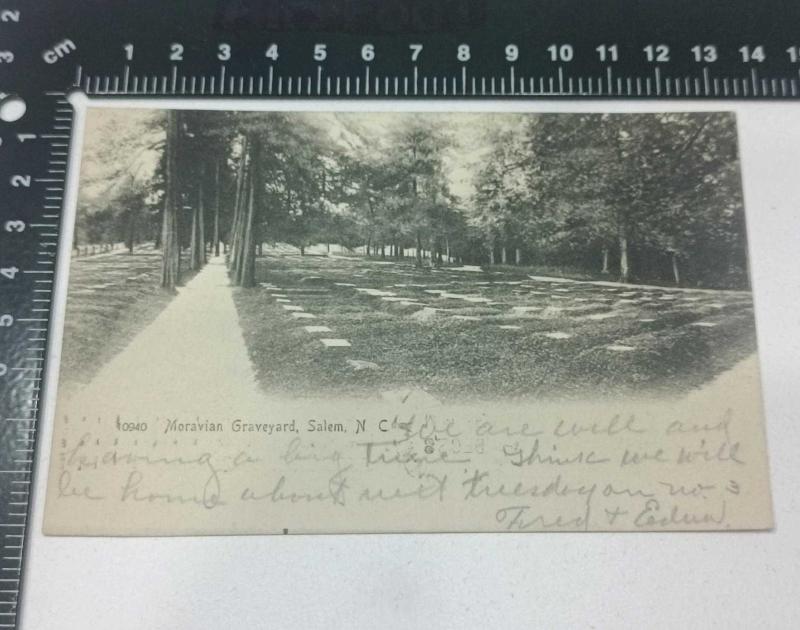 cm 1 2 3 4 5 6 7 8 9 10 11 12 13 14 15
2
3
1
2
3
4
5
10940 Moravian Graveyard, Salem, N C We are well and
having a big time think we will
be home about next tuesday on no 3
Fred + Edna